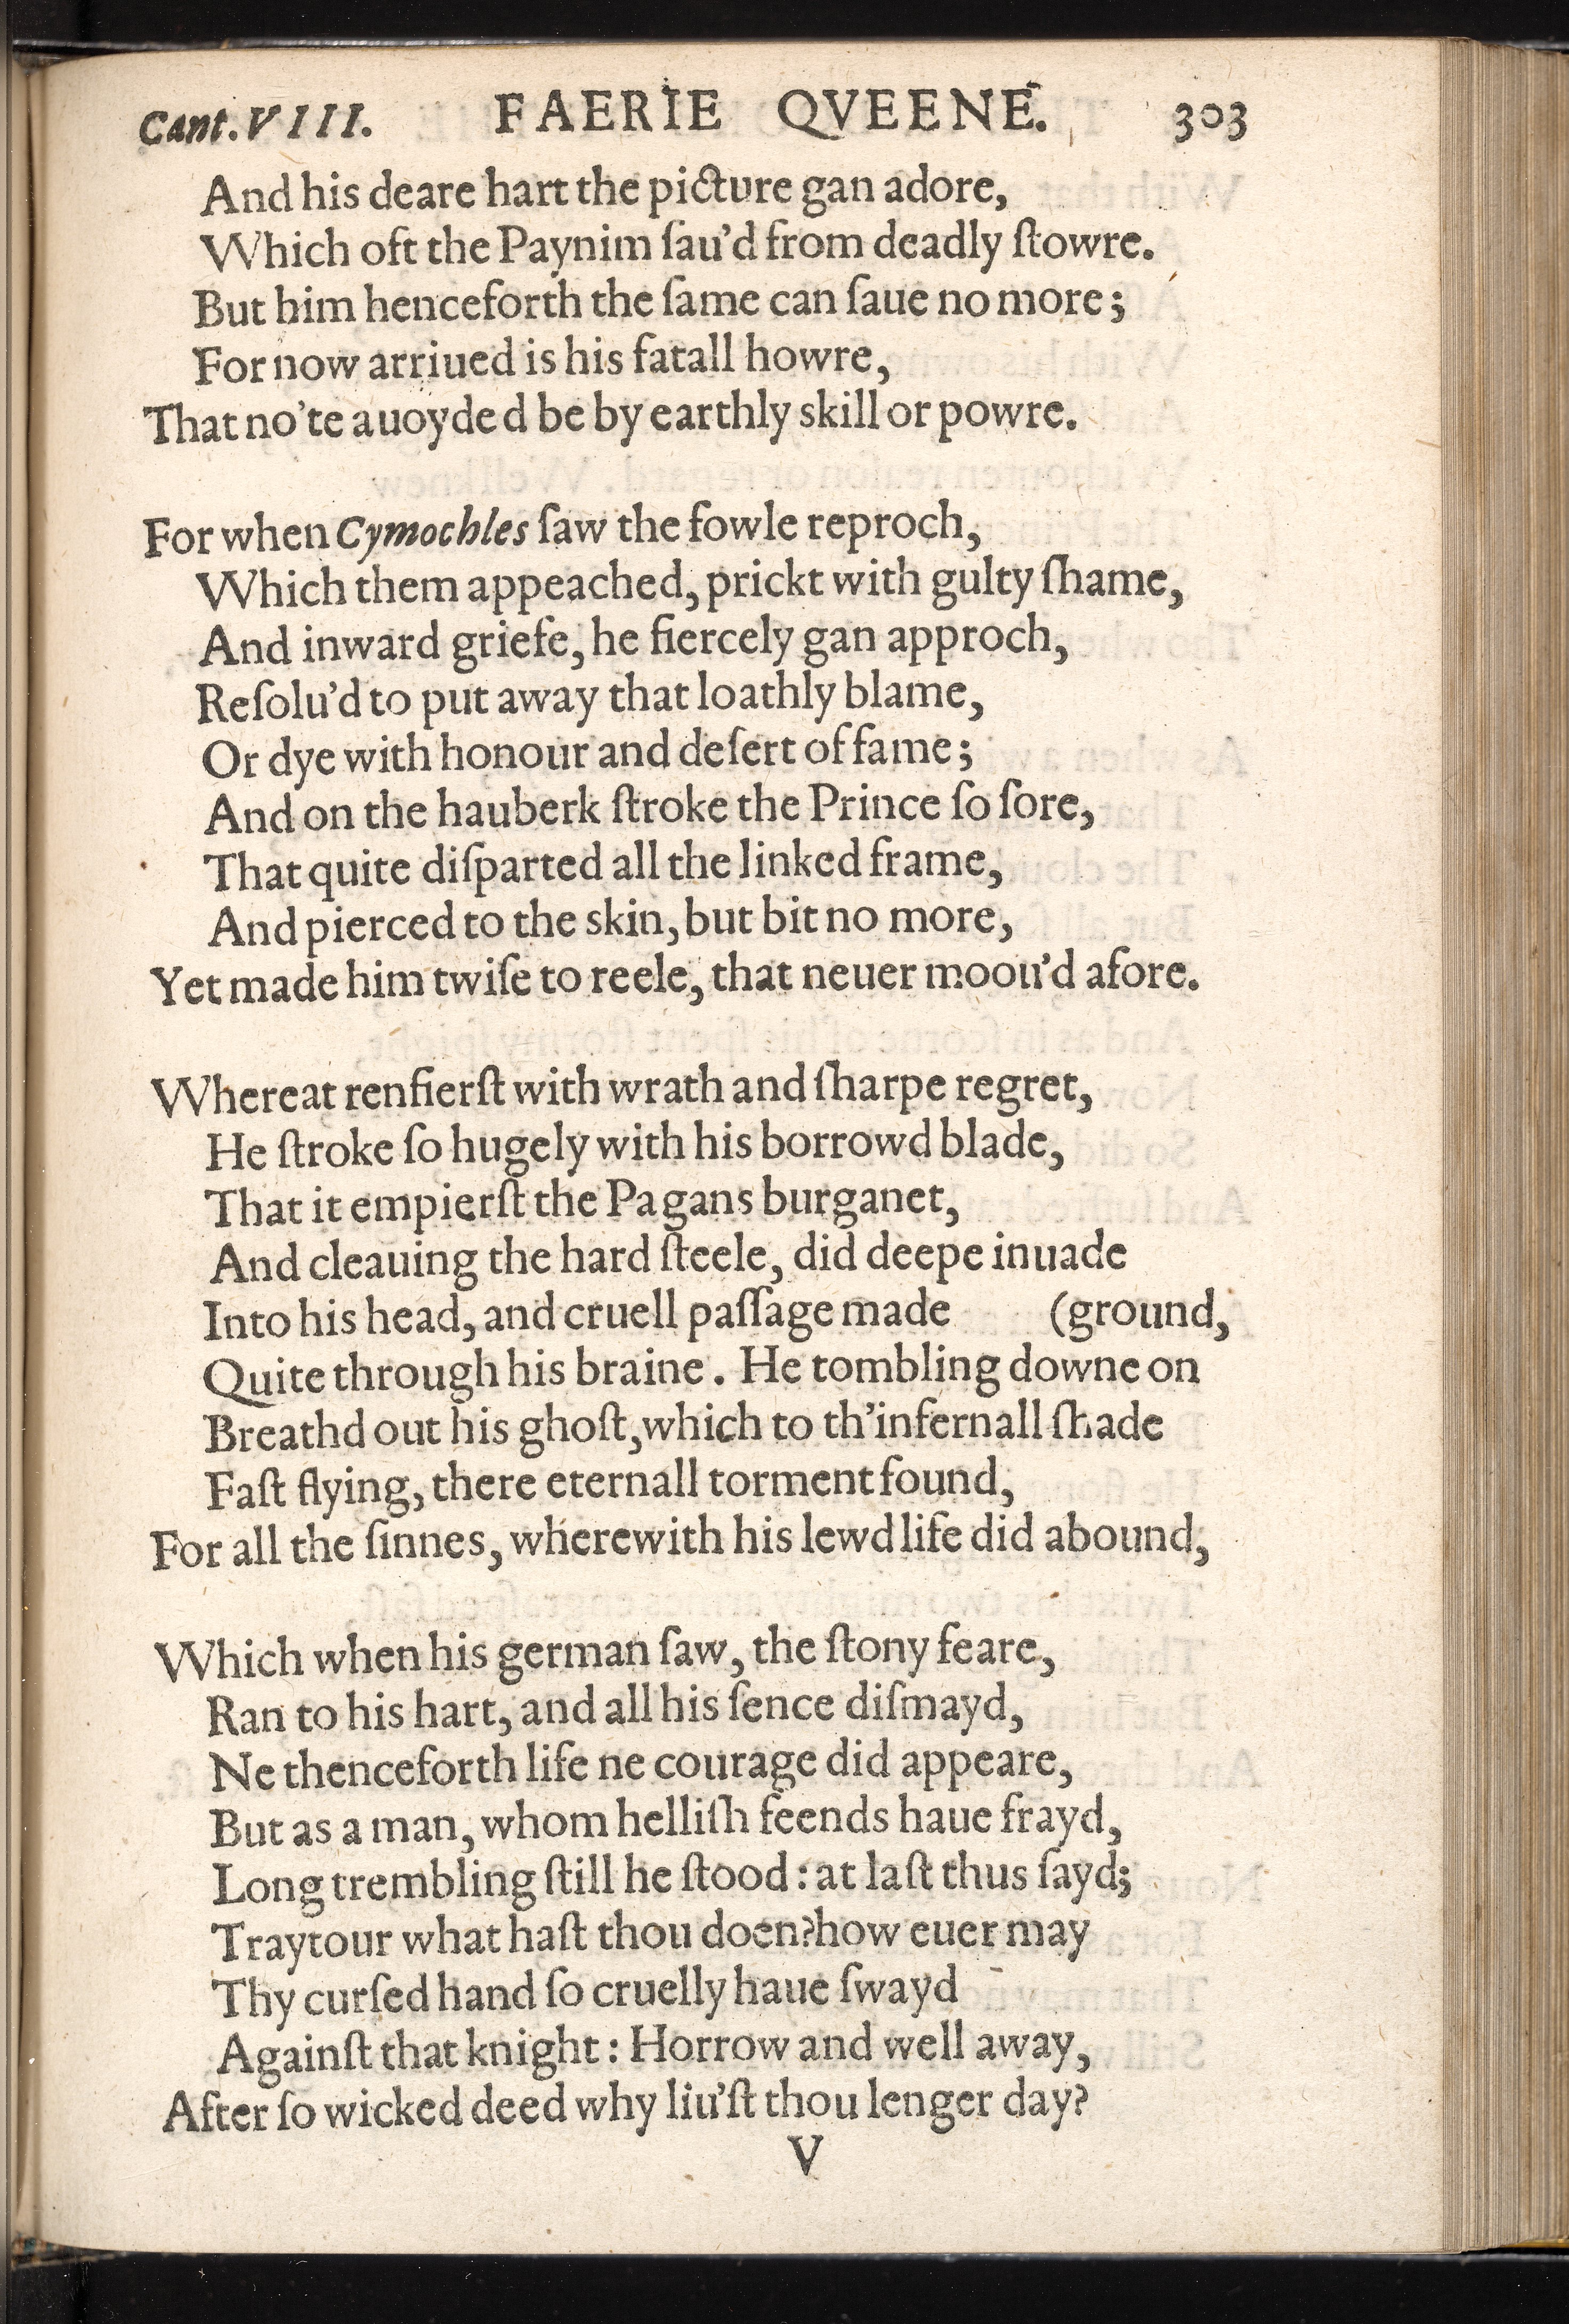 Cant. VIII. FAERIE QVEENE. 303
And his deare hart the picture gan adore,
Which oft the Paynim ſau'd from deadly ſtowre.
But him henceforth the ſame can ſaue no more;
For now arriued is his fatall howre,
That no'te auoyded be by earthly skill or powre.
For when Cymochles ſaw the fowle reproch,
Which them appeached, prickt with gulty ſhame,
And inward griefe, he fiercely gan approch,
Reſolu'd to put away that loathly blame,
Or dye with honour and deſert of fame;
And on the hauberk ſtroke the Prince ſo ſore,
That quite diſparted all the linked frame,
And pierced to the skin, but bit no more,
Yet made him twiſe to reele, that neuer moou'd afore.
Whereat renfierſt with wrath and ſharpe regret,
He ſtroke ſo hugely with his borrowd blade,
That it empierſt the Pagans burganet,
And cleauing the hard ſteele, did deepe inuade
Into his head, and cruell paſſage made (ground,
Quite through his braine. He tombling downe on
Breathd out his ghoſt, which to th'infernall ſhade
Faſt flying, there eternall torment found,
For all the ſinnes, wherewith his lewd life did abound,
Which when his german ſaw, the ſtony feare,
Ran to his hart, and all his ſence diſmayd,
Ne thenceforth life ne courage did appeare,
But as a man, whom helliſh feends haue frayd,
Long trembling ſtill he ſtood: at laſt thus ſayd;
Traytour what haſt thou doen? how euer may
Thy curſed hand ſo cruelly haue ſwayd
Againſt that knight: Horrow and well away,
After ſo wicked deed why liu'ſt thou lenger day?
V